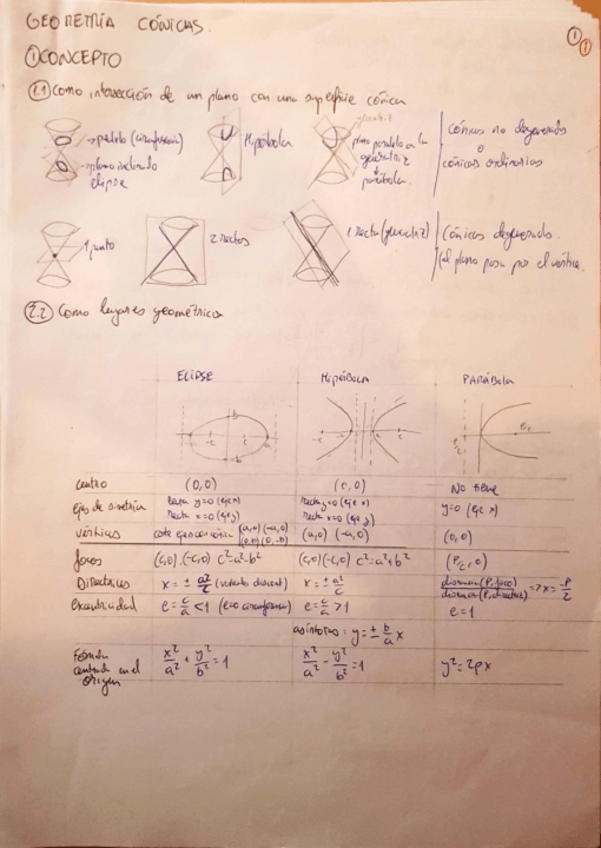 GEOMETRÍA CÓNICAS.
1
1
① CONCEPTO
1.1 Como intersección de un plano con una superficie cónica
→ paralelo (circunferencia)
→ plano inclinado
elipse
Hipérbola
generatriz
plano paralelo a la
generatriz
parábola.
Cónicas no degeneradas
o
cónicas ordinarias
1 punto
2 rectas
1 recta (generatriz)
Cónicas degeneradas.
(el plano pasa por el vértice.
2.2 Como lugares geométricos
ELIPSE HIPÉRBOLA PARÁBOLA
b
-c
a
-b
-c c
centro (0,0) (0,0) No tiene
ejes de simetría Recta y=0 (eje x) Recta y=0 (eje x) y=0 (eje x)
Recta x=0 (eje y) Recta x=0 (eje y)
vértices corte ejes con cónica (a,0) (-a,0) (a,0) (-a,0) (0,0)
(0,b) (0,-b)
focos (c,0) (-c,0) c²=a²-b² (c,0) (-c,0) c²=a²+b² (P/2,0)
Directrices x = ± a²/c x = ± a²/c distancia(P, foco)/distancia(P, directriz) => x = -P/2
excentricidad e = c/a < 1 (e=0 circunferencia) e = c/a > 1 e = 1
asíntotas: y = ± b/a x
Fórmula x²/a² + y²/b² = 1 x²/a² - y²/b² = 1 y² = 2px
centrada en el
origen